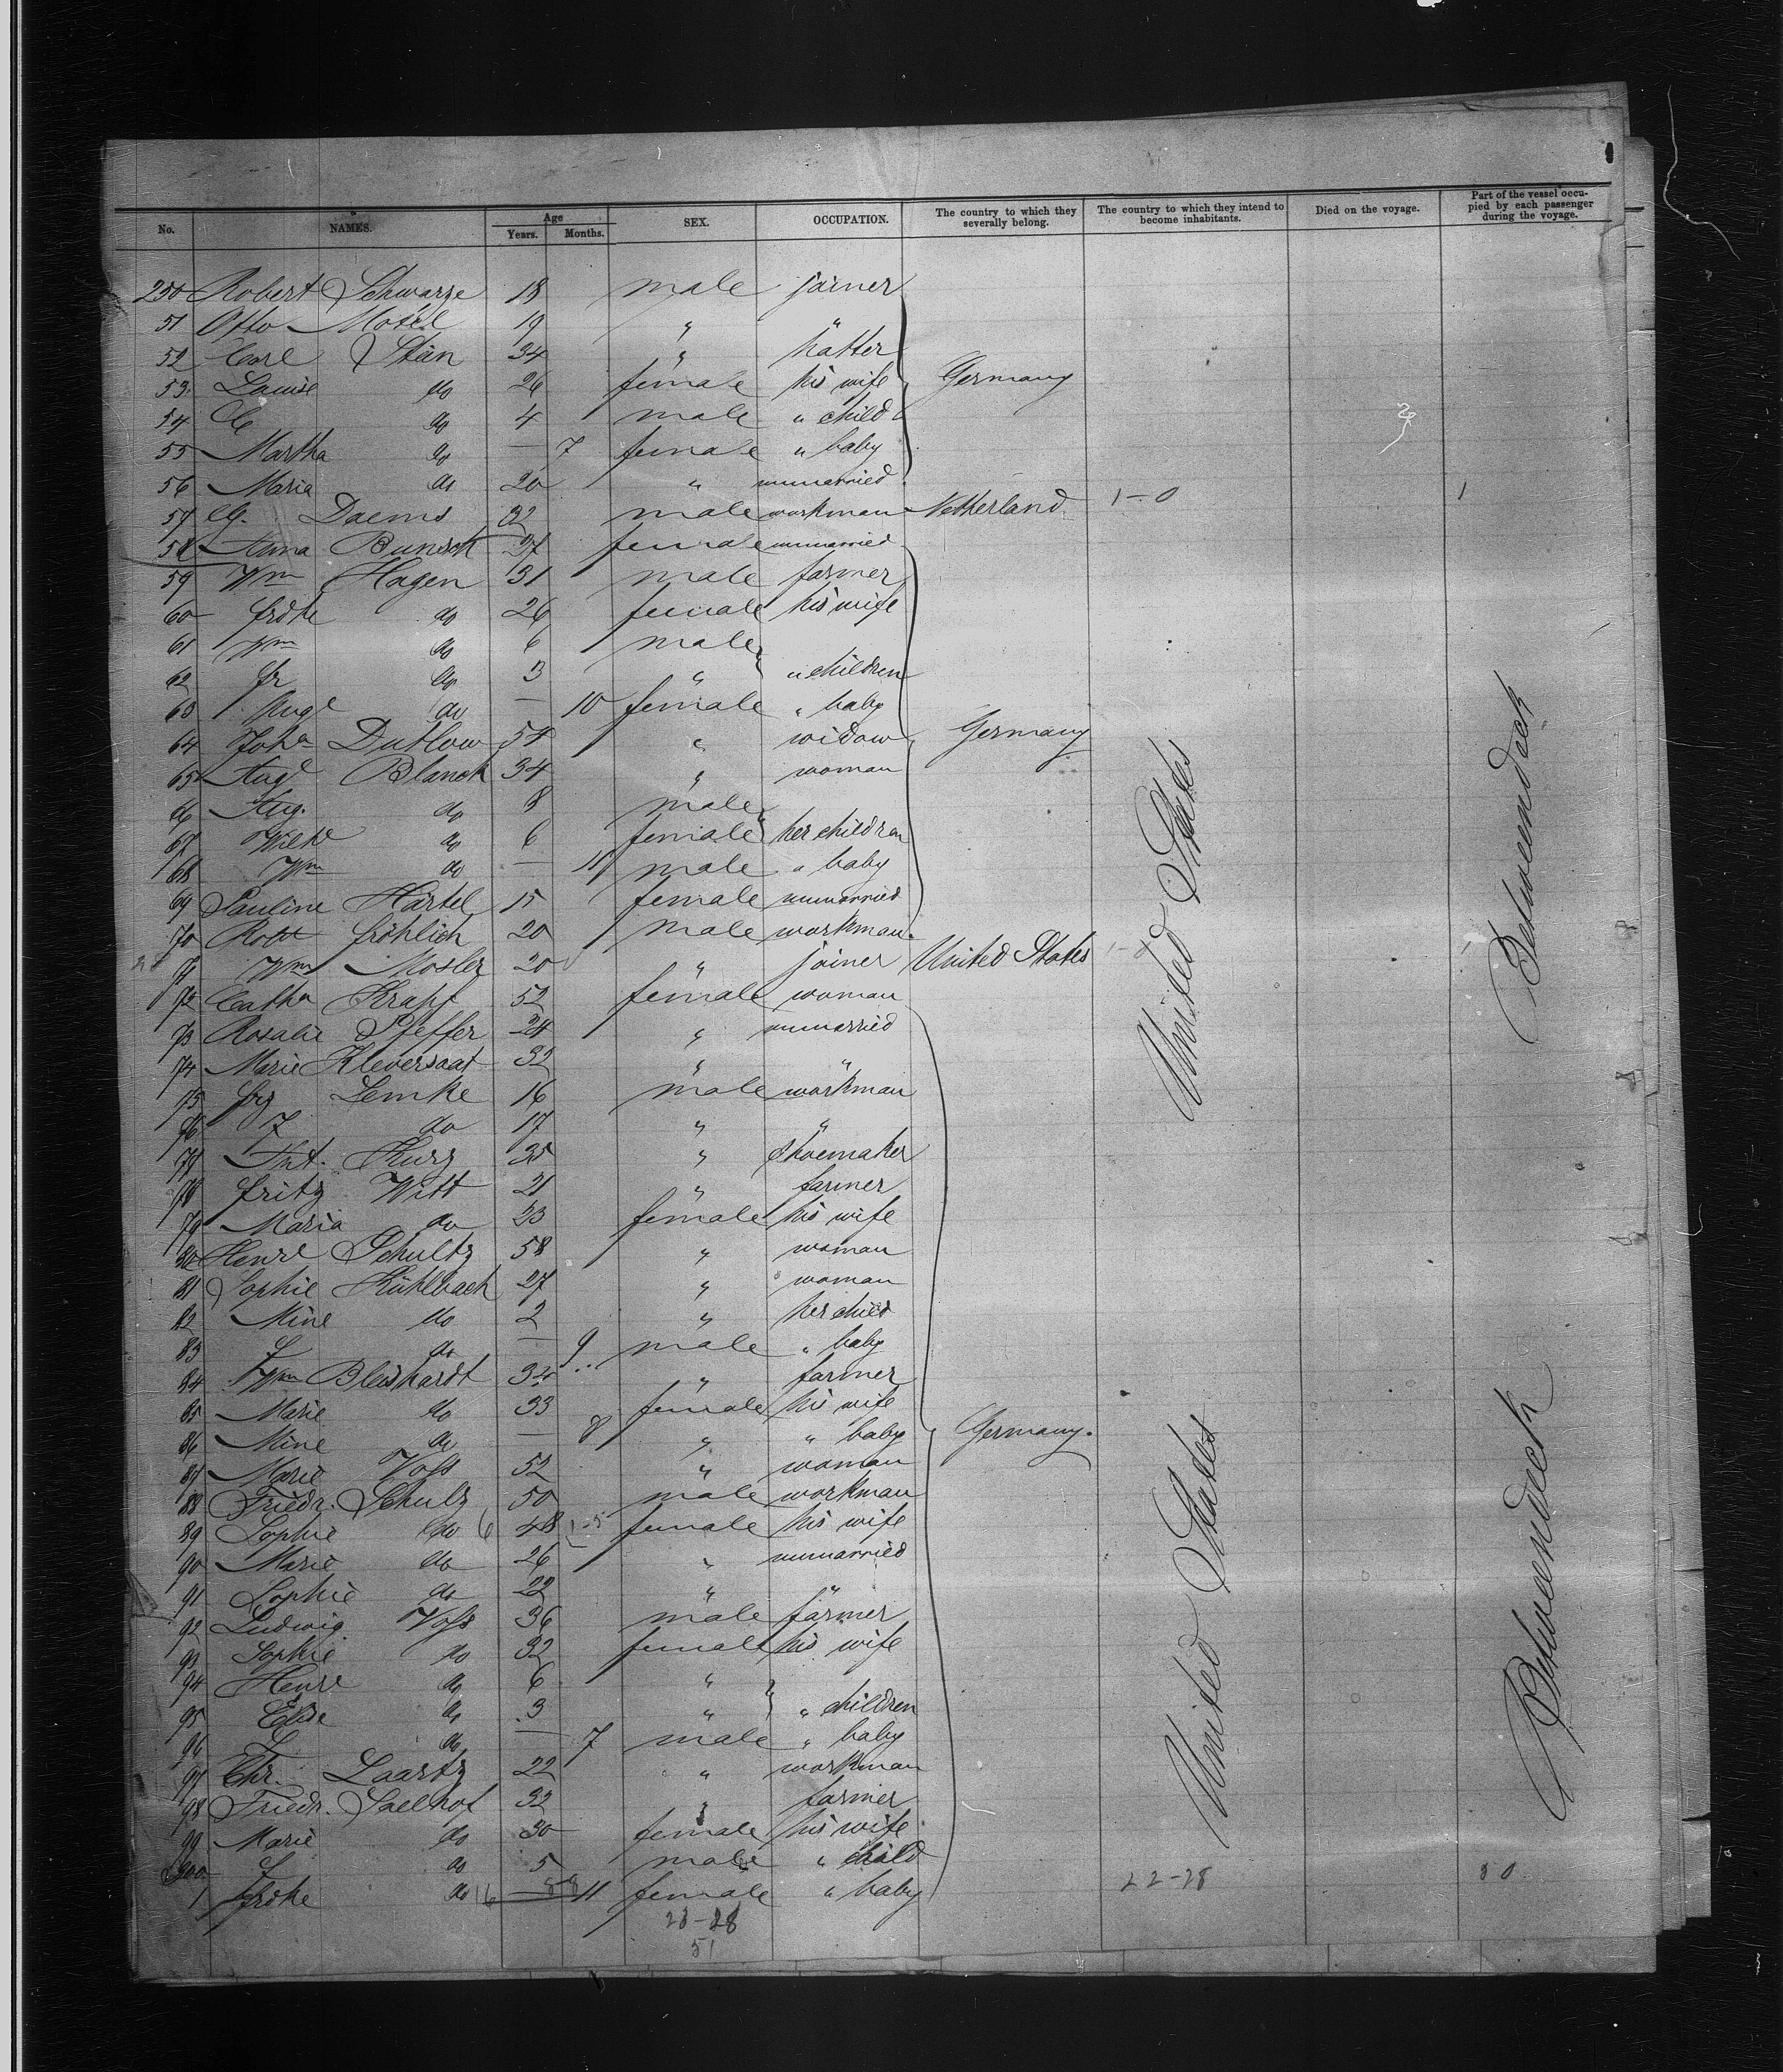 No. NAMES. Age Years. Months. SEX. OCCUPATION. The country to which they severally belong. The country to which they intend to become inhabitants. Died on the voyage. Part of the vessel occupied by each passenger during the voyage.
250 Robert Schwarze 18 male joiner
51 Otto Motel 19 " "
52 Carl Stän 34 " hatter
53 Louise do 26 female his wife Germany
54 C do 4 male " child
55 Martha do — 7 female " baby
56 Maria do 20 " unmarried
57 G. Daems 32 male workman Netherland 1-0 1
58 Anna Bunsch 27 female unmarried
59 Wm Hagen 31 male farmer
60 frdke do 26 female his wife
61 Wm do 6 male
62 fr do 3 " " children
63 Auge do — 10 female " baby
64 Joha Dutlow 54 " widow Germany
65 Auge Blanck 34 " woman
66 Aug. do 8 male
67 Wilhe do 6 female her children
68 Wm do — 11 male " baby
69 Pauline Härtel 15 female unmarried
70 Robt fröhlich 20 male workman
71 Wm Mosler 20 " joiner United States 1-0
72 Catha Krapf 52 female woman
73 Rosalie Pfeffer 24 " unmarried
74 Marie Kleversaat 32 " "
75 frz Lemke 16 male workman
76 J do 17 " "
77 Ant. Kurz 35 " shoemaker
78 fritz Witt 21 " farmer
79 Maria do 23 female his wife
80 Henre Schultz 58 " woman
81 Sophie Kühlbach 27 " woman
82 Mine do 2 " her child
83 L do — 9 male " baby
84 Wm Bleishardt 34 " farmer
85 Marie do 33 female his wife
86 Mine do — 8 " " baby Germany.
87 Marie Voss 52 " woman
88 Friedr. Schulz 50 male workman
89 Sophie do 48 female his wife
90 Marie do 26 " unmarried
91 Sophie do 22 " "
92 Ludwig Voss 36 male farmer
93 Sophie do 32 female his wife
94 Henre do 6 "
95 Elise do 3 " " children
96 L do — 7 male " baby
97 Chr. Laartz 22 " workman
98 Friedr. Saelhof 32 " farmer
99 Marie do 30 female his wife
300 f do 5 male " child
1 frdke do — 11 female " baby
United States
United States
Betweendeck
Betweendeck
23-28
51
22-28
80